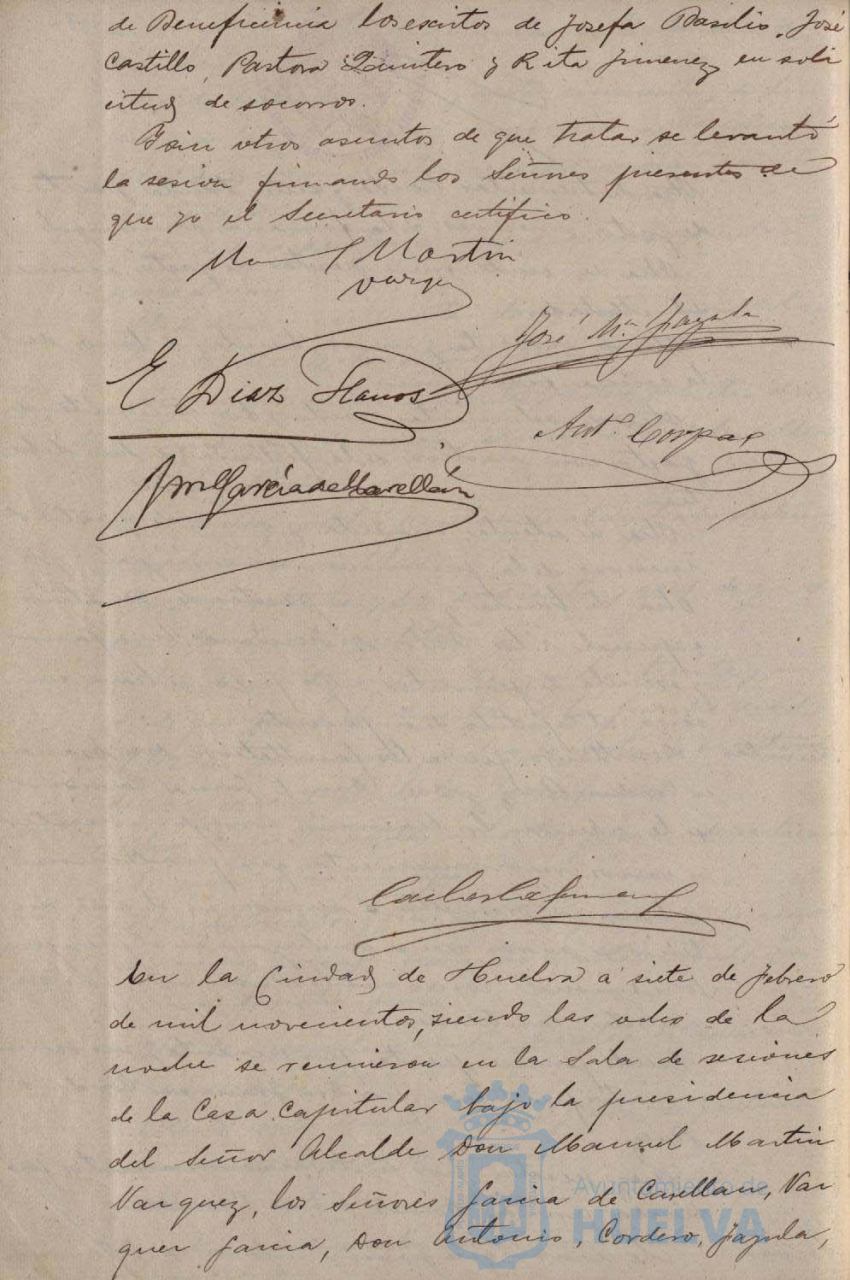 de Beneficencia los escritos de Josefa Basilio, José
Castillo, Pastora Quintero y Rita Jimenez en soli
citud de socorros.
Y sin otros asuntos de que tratar se levantó
la sesion firmando los Señores presentes de
que yo el Secretario certifico.
M Martin
Vazqz
José Mª Zayala
E Diaz Llanos
Antº Corpas
García de
En la Ciudad de Huelva á siete de febrero
de mil novecientos, siendo las ocho de la
noche se reunieron en la Sala de sesiones
de la Casa Capitular bajo la presidencia
del Señor Alcalde Don Manuel Martin
Vazquez, los Señores Garcia de Casellan, Vaz
quez Garcia, Don Antonio, Cordero, Zayala,
Ayuntamiento de
HUELVA